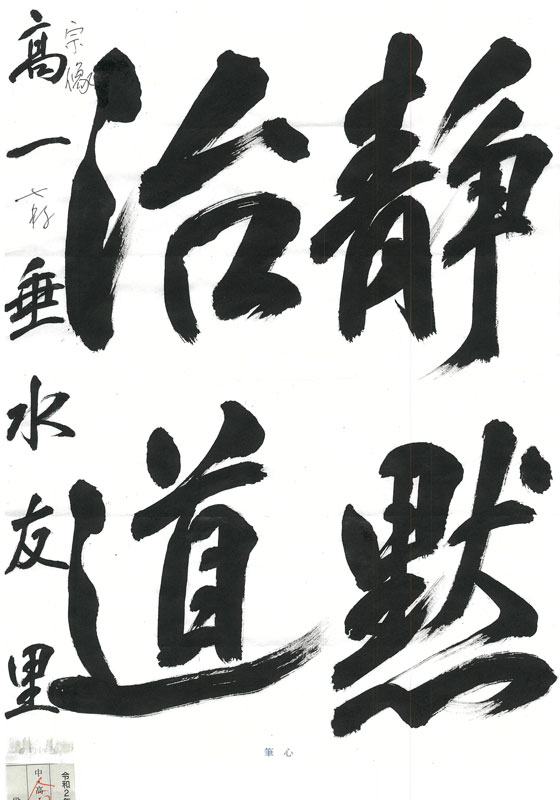 静默
治道
高一 垂水友里
宗像
心筆
令和2年
中高